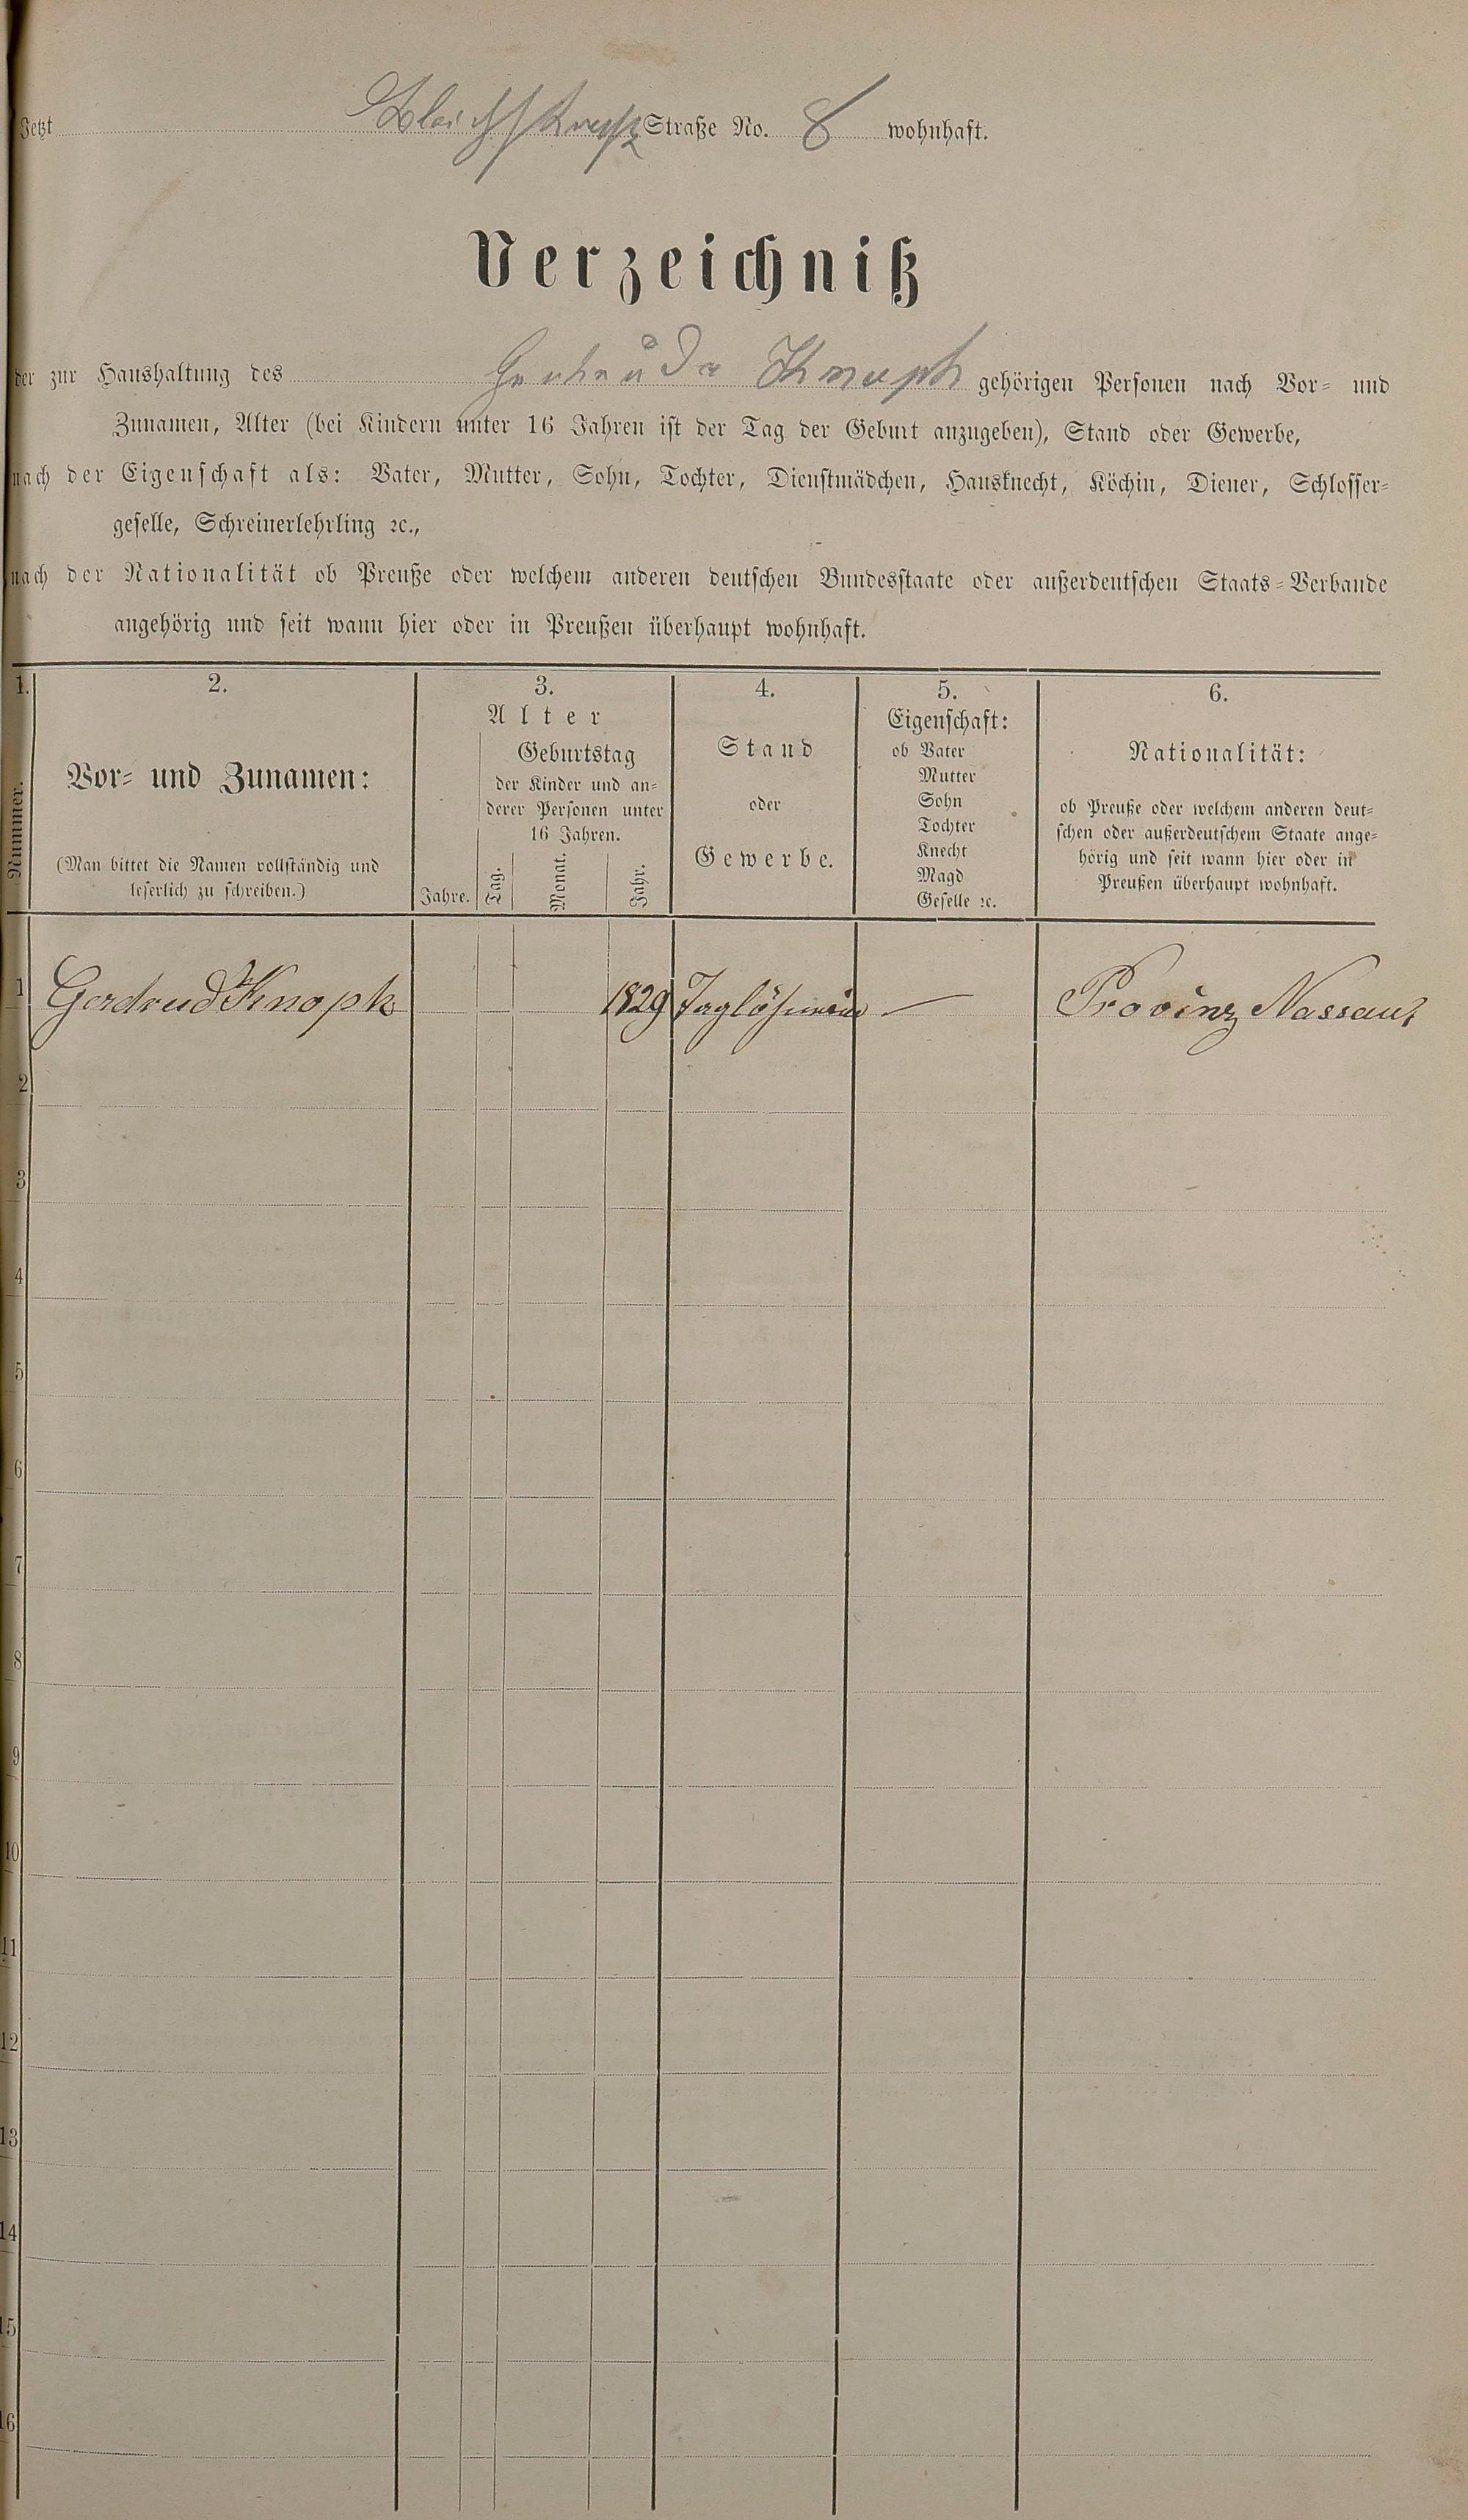 Jetzt Bleichstraße Straße No. 8 wohnhaft.
Verzeichniß
der zur Haushaltung des Knoph gehörigen Personen nach Vor- und
Zunamen, Alter (bei Kindern unter 16 Jahren ist der Tag der Geburt anzugeben), Stand oder Gewerbe,
nach der Eigenschaft als: Vater, Mutter, Sohn, Tochter, Dienstmädchen, Hausknecht, Köchin, Diener, Schlosser-
geselle, Schreinerlehrling ꝛc.,
nach der Nationalität ob Preuße oder welchem anderen deutschen Bundesstaate oder außerdeutschen Staats-Verbande
angehörig und seit wann hier oder in Preußen überhaupt wohnhaft.
1.
Nummer.
2.
Vor- und Zunamen:
(Man bittet die Namen vollständig und
leserlich zu schreiben.)
3.
Alter
Jahre.
Geburtstag
der Kinder und an-
derer Personen unter
16 Jahren.
Tag.
Monat.
Jahr.
4.
Stand
oder
Gewerbe.
5.
Eigenschaft:
ob Vater
Mutter
Sohn
Tochter
Knecht
Magd
Geselle ꝛc.
6.
Nationalität:
ob Preuße oder welchem anderen deut-
schen oder außerdeutschem Staate ange-
hörig und seit wann hier oder in
Preußen überhaupt wohnhaft.
1 Gerdrud Knoph 1829 Taglöhnerin — Provinz Nassau
2
3
4
5
6
7
8
9
10
11
12
13
14
15
16